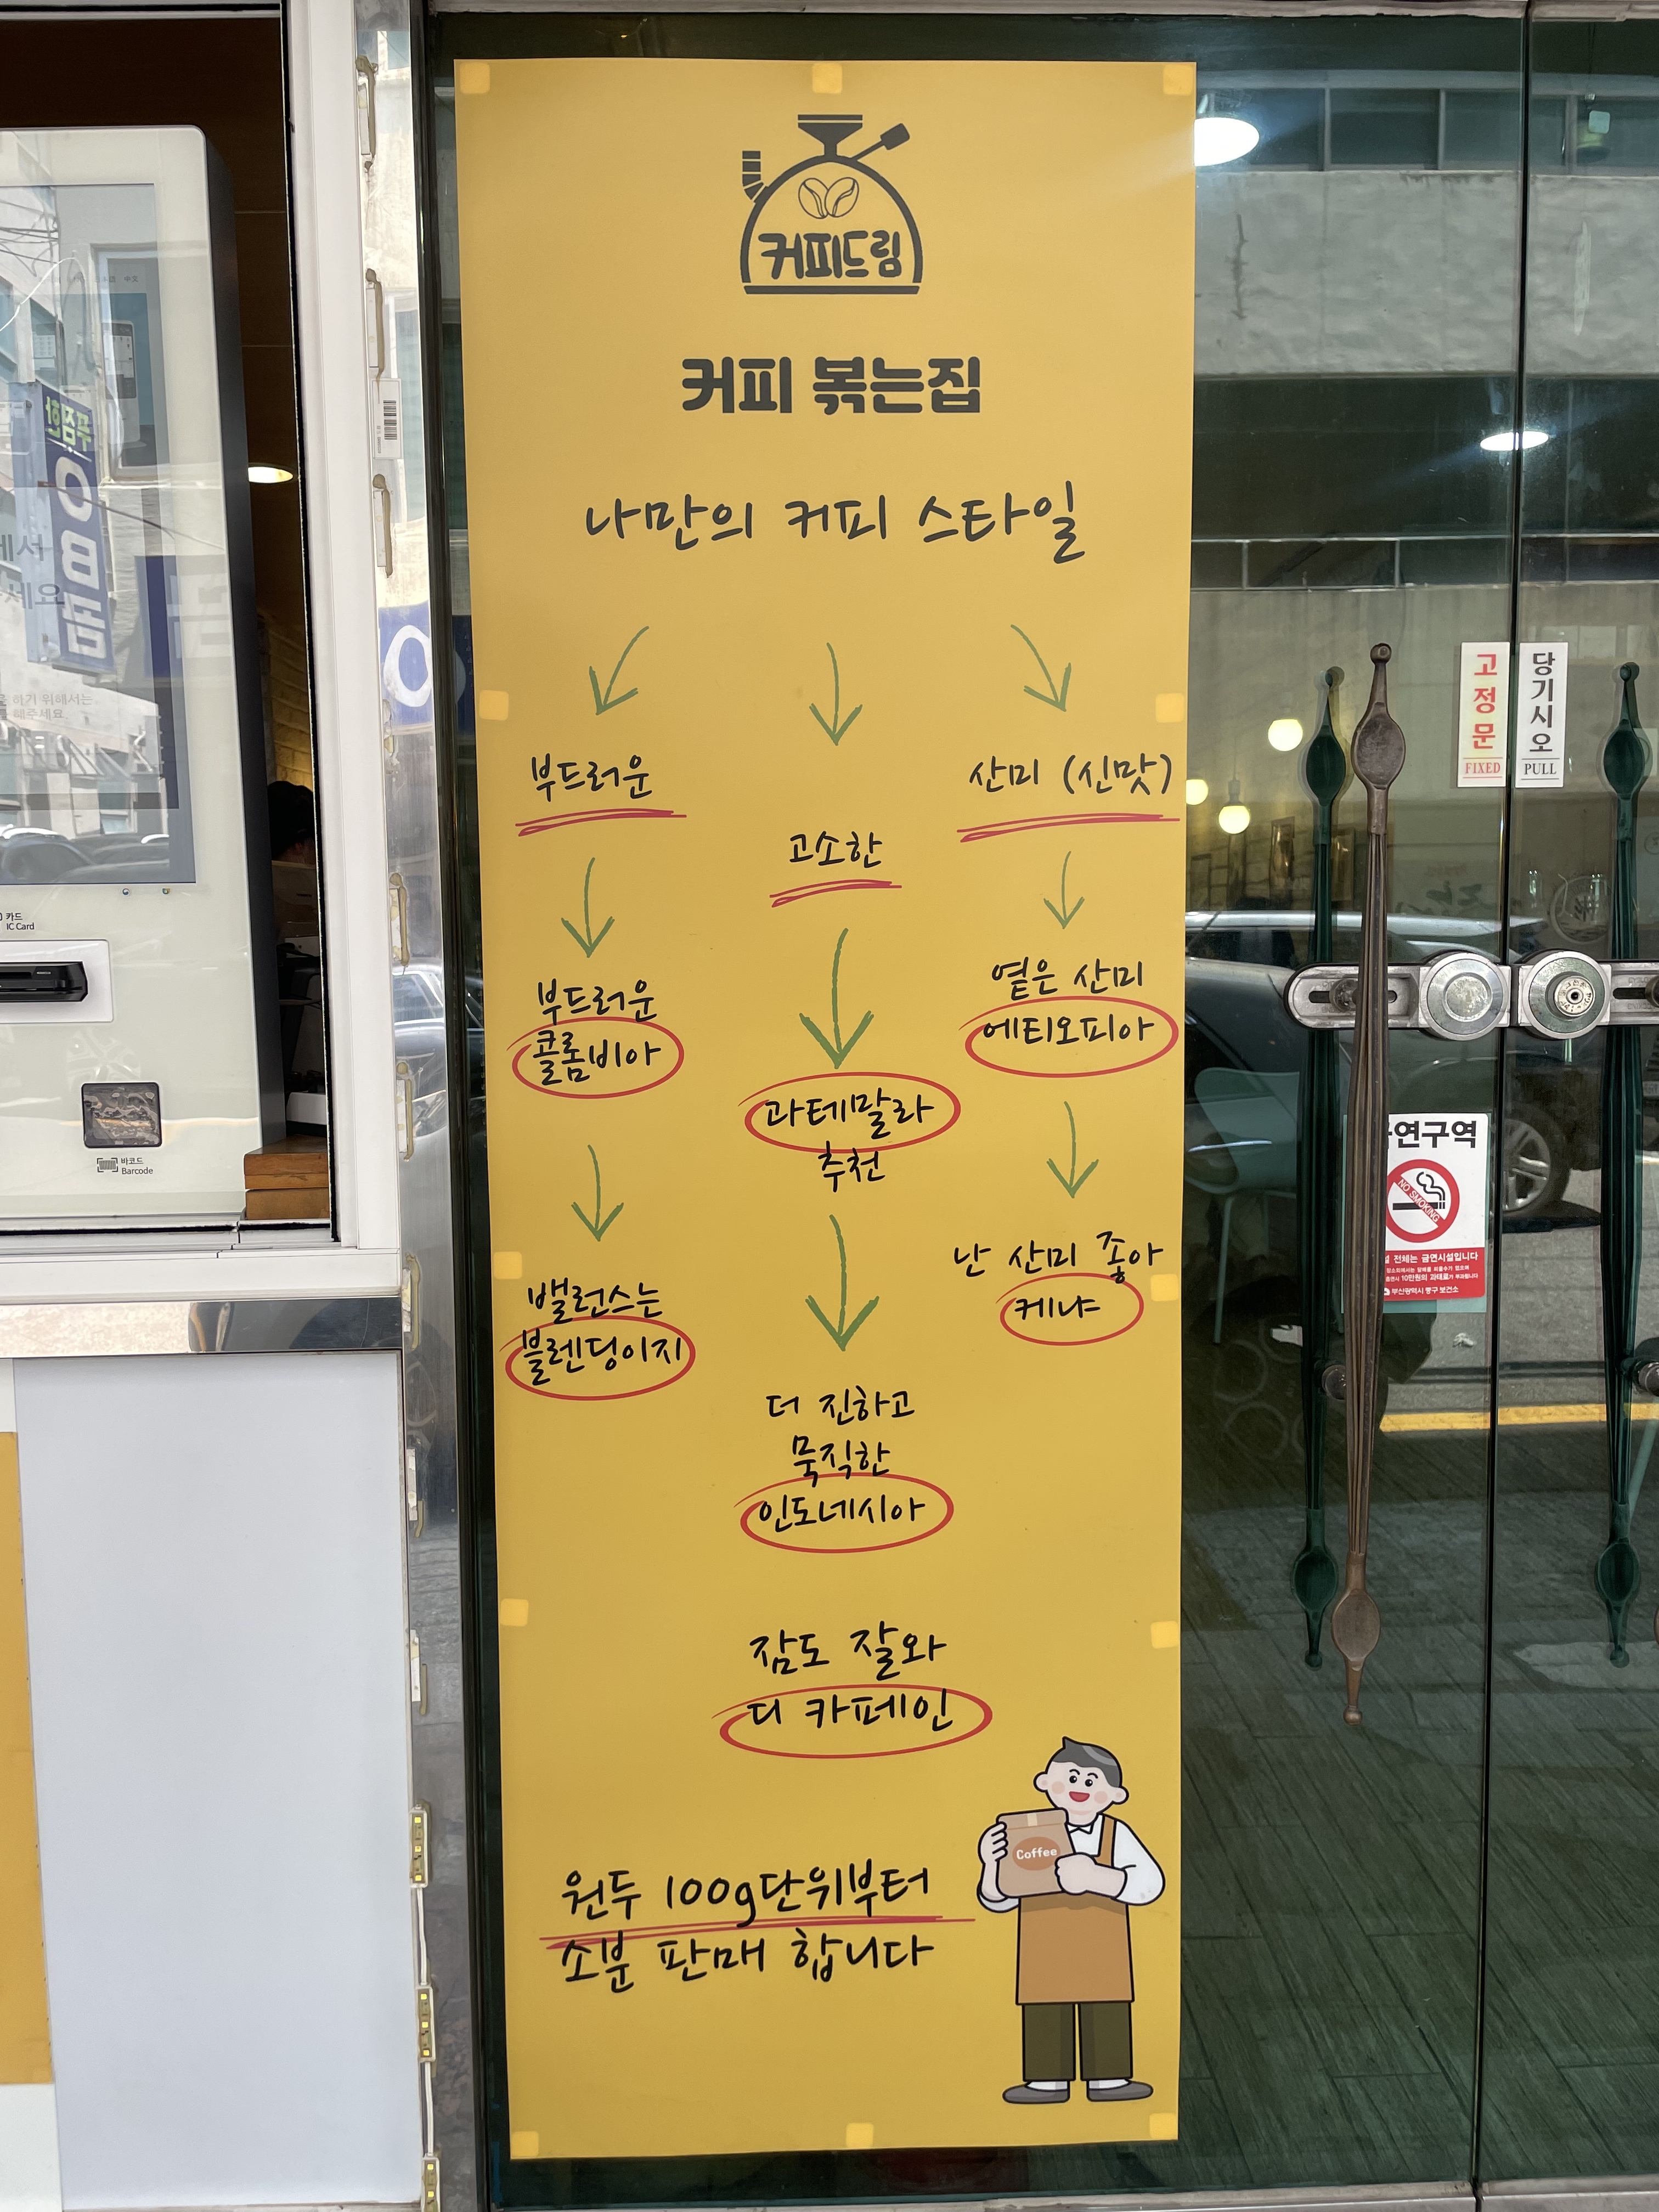 커피드림
커피 볶는집
나만의 커피 스타일
부드러운
고소한
산미 (신맛)
부드러운
콜롬비아
과테말라
추천
옅은 산미
에티오피아
밸런스는
블렌딩이지
더 진하고
묵직한
인도네시아
난 산미 좋아
케냐
잠도 잘와
디 카페인
Coffee
원두 100g단위부터
소분 판매 합니다
고정문
FIXED
당기시오
PULL
연구역
NO SMOKING
전체는 금연시설입니다
부산광역시 중구 보건소
카드
IC Card
바코드
Barcode
하기 위해서는
해주세요.